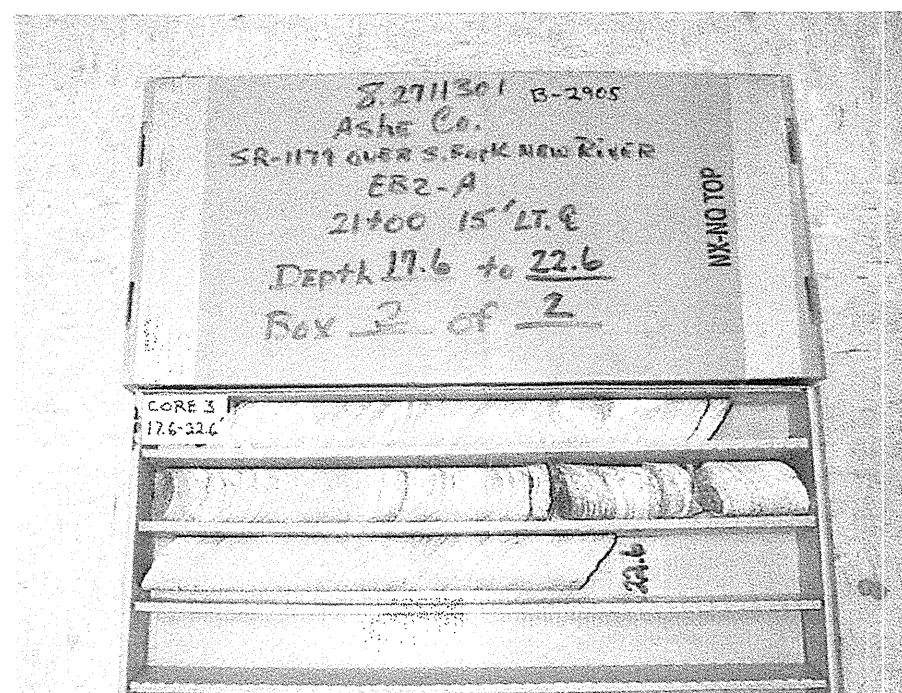 8.2711301 B-2905
Ashe Co.
SR-1179 OVER S. Fork NEW RIVER
ER2-A
21+00 15' LT. ℄
Depth 17.6 to 22.6
Box 2 of 2
NX-NQ TOP
CORE 3
17.6-22.6'
22.6